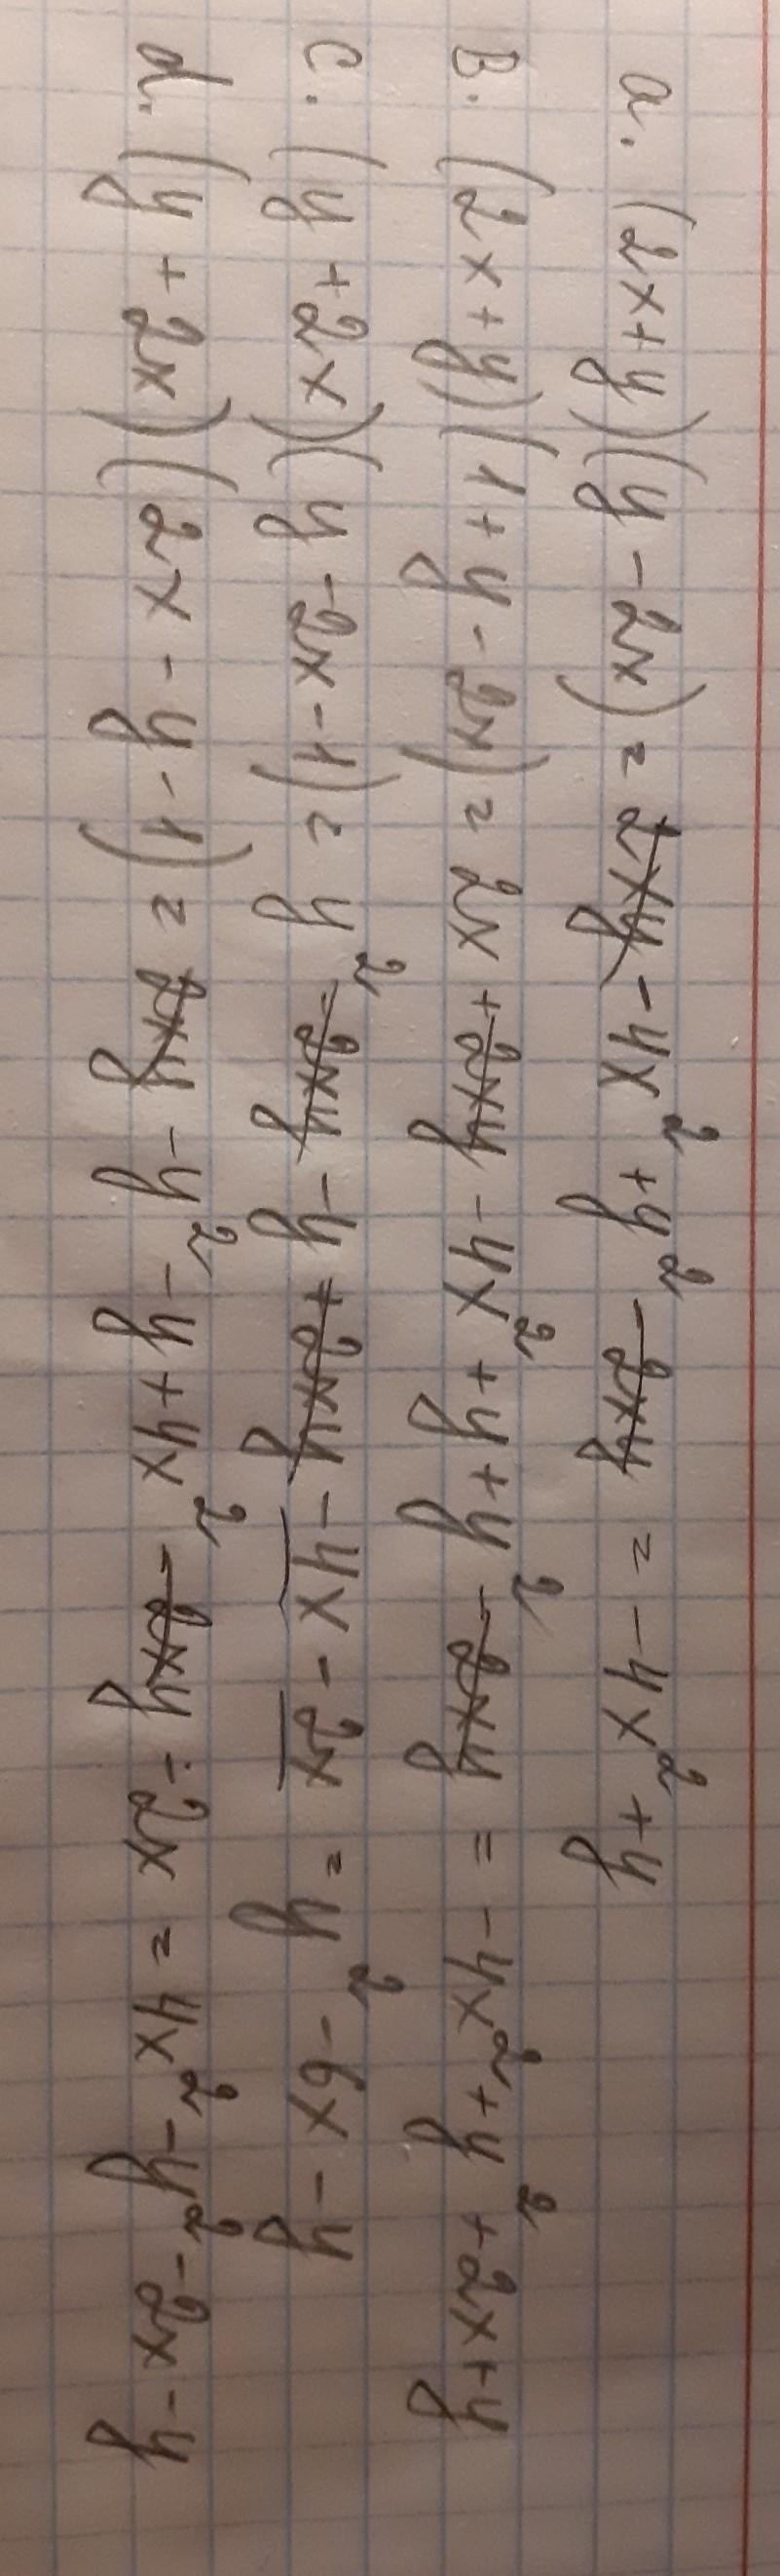 a. (2x+y)(y-2x) = 2xy - 4x² + y² - 2xy = -4x² + y
B. (2x+y)(1+y-2x) = 2x + 2xy - 4x² + y + y² - 2xy = -4x² + y² + 2x + y
c. (y+2x)(y-2x-1) = y² - 2xy - y + 2xy - 4x - 2x = y² - 6x - y
d. (y+2x)(2x-y-1) = 2xy - y² - y + 4x² - 2xy - 2x = 4x² - y² - 2x - y